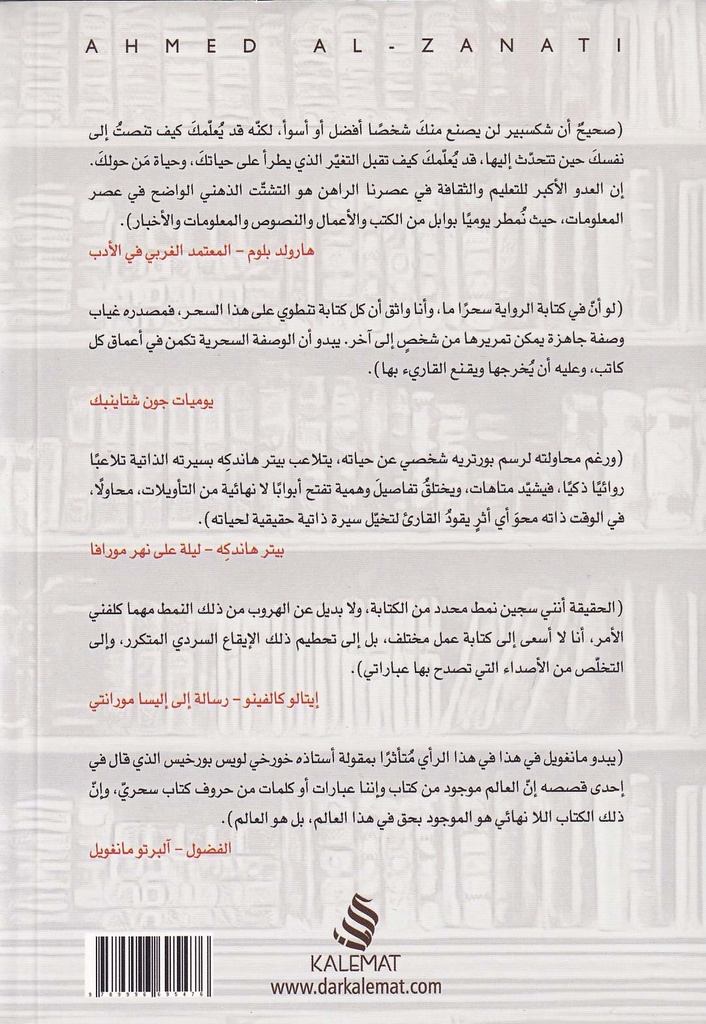 AHMED AL-ZANATI
(صحيحٌ أن شكسبير لن يصنع منكَ شخصًا أفضل أو أسوأ، لكنّه قد يُعلّمكَ كيف تنصتُ إلى
نفسكَ حين تتحدّث إليها، قد يُعلّمكَ كيف تقبل التغيّر الذي يطرأ على حياتكَ، وحياة مَن حولكَ.
إن العدو الأكبر للتعليم والثقافة في عصرنا الراهن هو التشتّت الذهني الواضح في عصر
المعلومات، حيث نُمطر يوميًا بوابل من الكتب والأعمال والنصوص والمعلومات والأخبار).
هارولد بلوم – المعتمد الغربي في الأدب
(لو أنّ في كتابة الرواية سحرًا ما، وأنا واثق أن كل كتابة تنطوي على هذا السحر، فمصدره غياب
وصفة جاهزة يمكن تمريرها من شخصٍ إلى آخر. يبدو أن الوصفة السحرية تكمن في أعماق كل
كاتب، وعليه أن يُخرجها ويقنع القاريء بها).
يوميات جون شتاينبك
(ورغم محاولته لرسم بورتريه شخصي عن حياته، يتلاعب بيتر هاندكِه بسيرته الذاتية تلاعبًا
روائيًا ذكيًا، فيشيّد متاهات، ويختلقُ تفاصيلَ وهمية تفتح أبوابًا لا نهائية من التأويلات، محاولًا،
في الوقت ذاته محوَ أي أثرٍ يقودُ القارئ لتخيّل سيرة ذاتية حقيقية لحياته).
بيتر هاندكِه – ليلة على نهر مورافا
(الحقيقة أنني سجين نمط محدد من الكتابة، ولا بديل عن الهروب من ذلك النمط مهما كلفني
الأمر، أنا لا أسعى إلى كتابة عمل مختلف، بل إلى تحطيم ذلك الإيقاع السردي المتكرر، وإلى
التخلّص من الأصداء التي تصدح بها عباراتي).
إيتالو كالفينو – رسالة إلى إليسا مورانتي
(يبدو مانغويل في هذا في هذا الرأي مُتأثرًا بمقولة أستاذه خورخي لويس بورخيس الذي قال في
إحدى قصصه إنّ العالم موجود من كتاب وإننا عبارات أو كلمات من حروف كتاب سحريّ، وإنّ
ذلك الكتاب اللا نهائي هو الموجود بحق في هذا العالم، بل هو العالم).
الفضول – آلبرتو مانغويل
KALEMAT
www.darkalemat.com
9 789996 695476